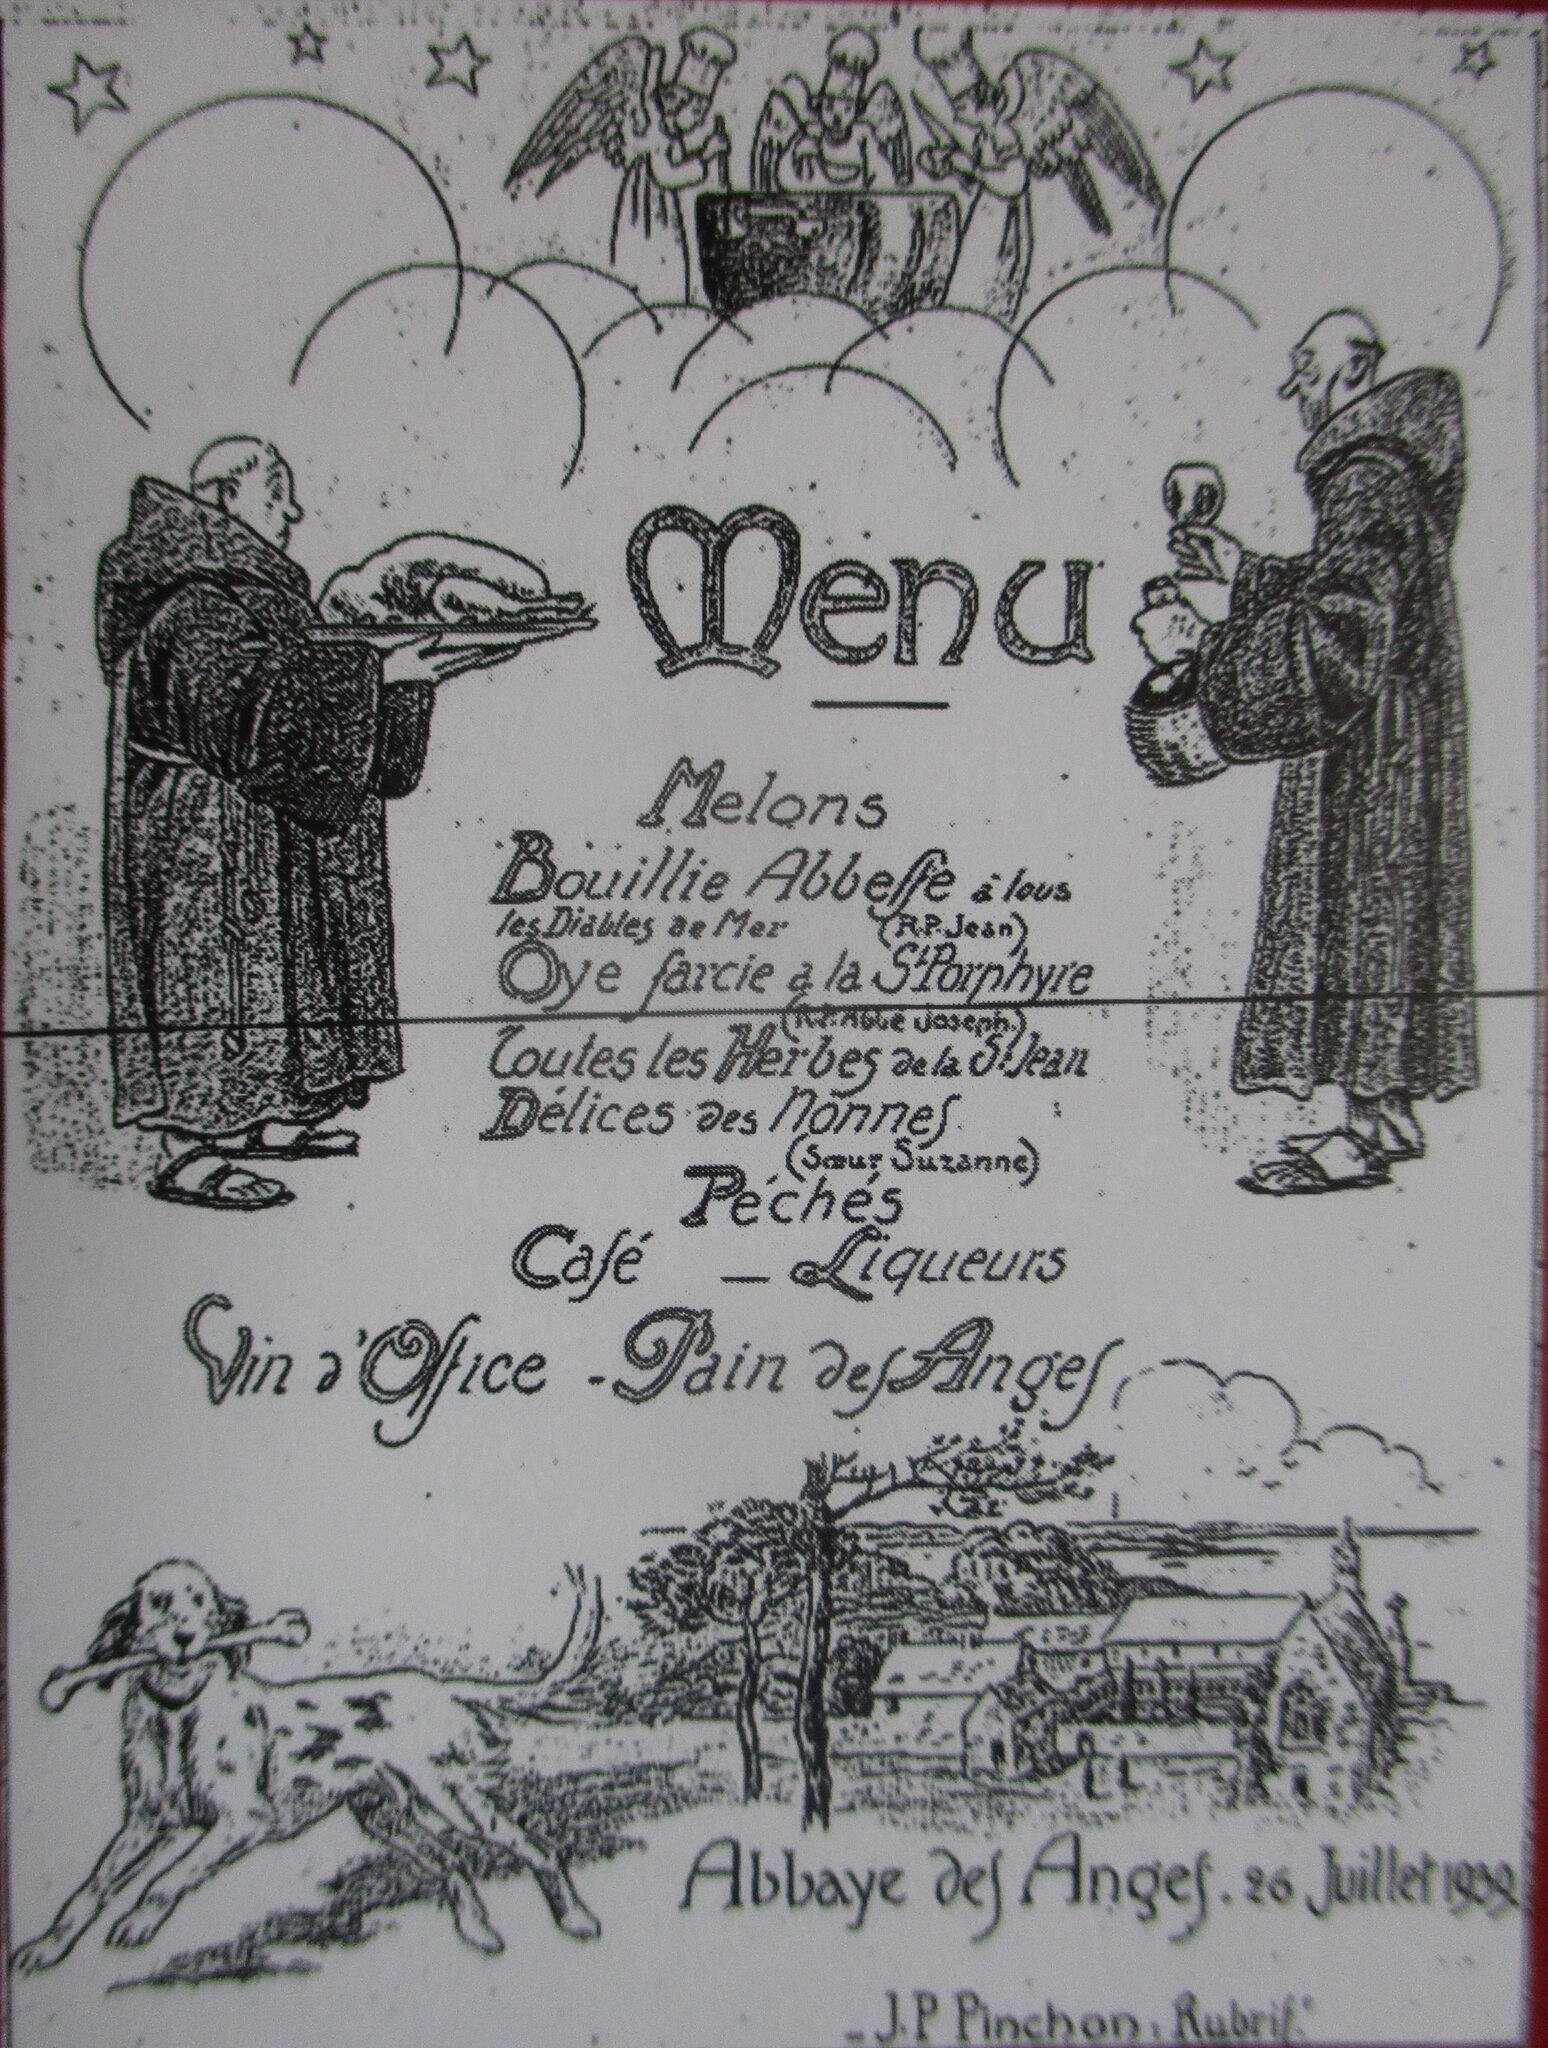 Menu
Melons
Bouillie Abbesse à tous
les Diables de Mer (R.P. Jean)
Oye farcie à la St Porphyre
(R.P. Abbé Joseph.)
Toutes les Herbes de la St Jean
Délices des Nonnes
(Sœur Suzanne)
Péchés
Café — Liqueurs
Vin d'Office - Pain des Anges
Abbaye des Anges. 26 Juillet 1939
- J.P Pinchon, Rubrif.